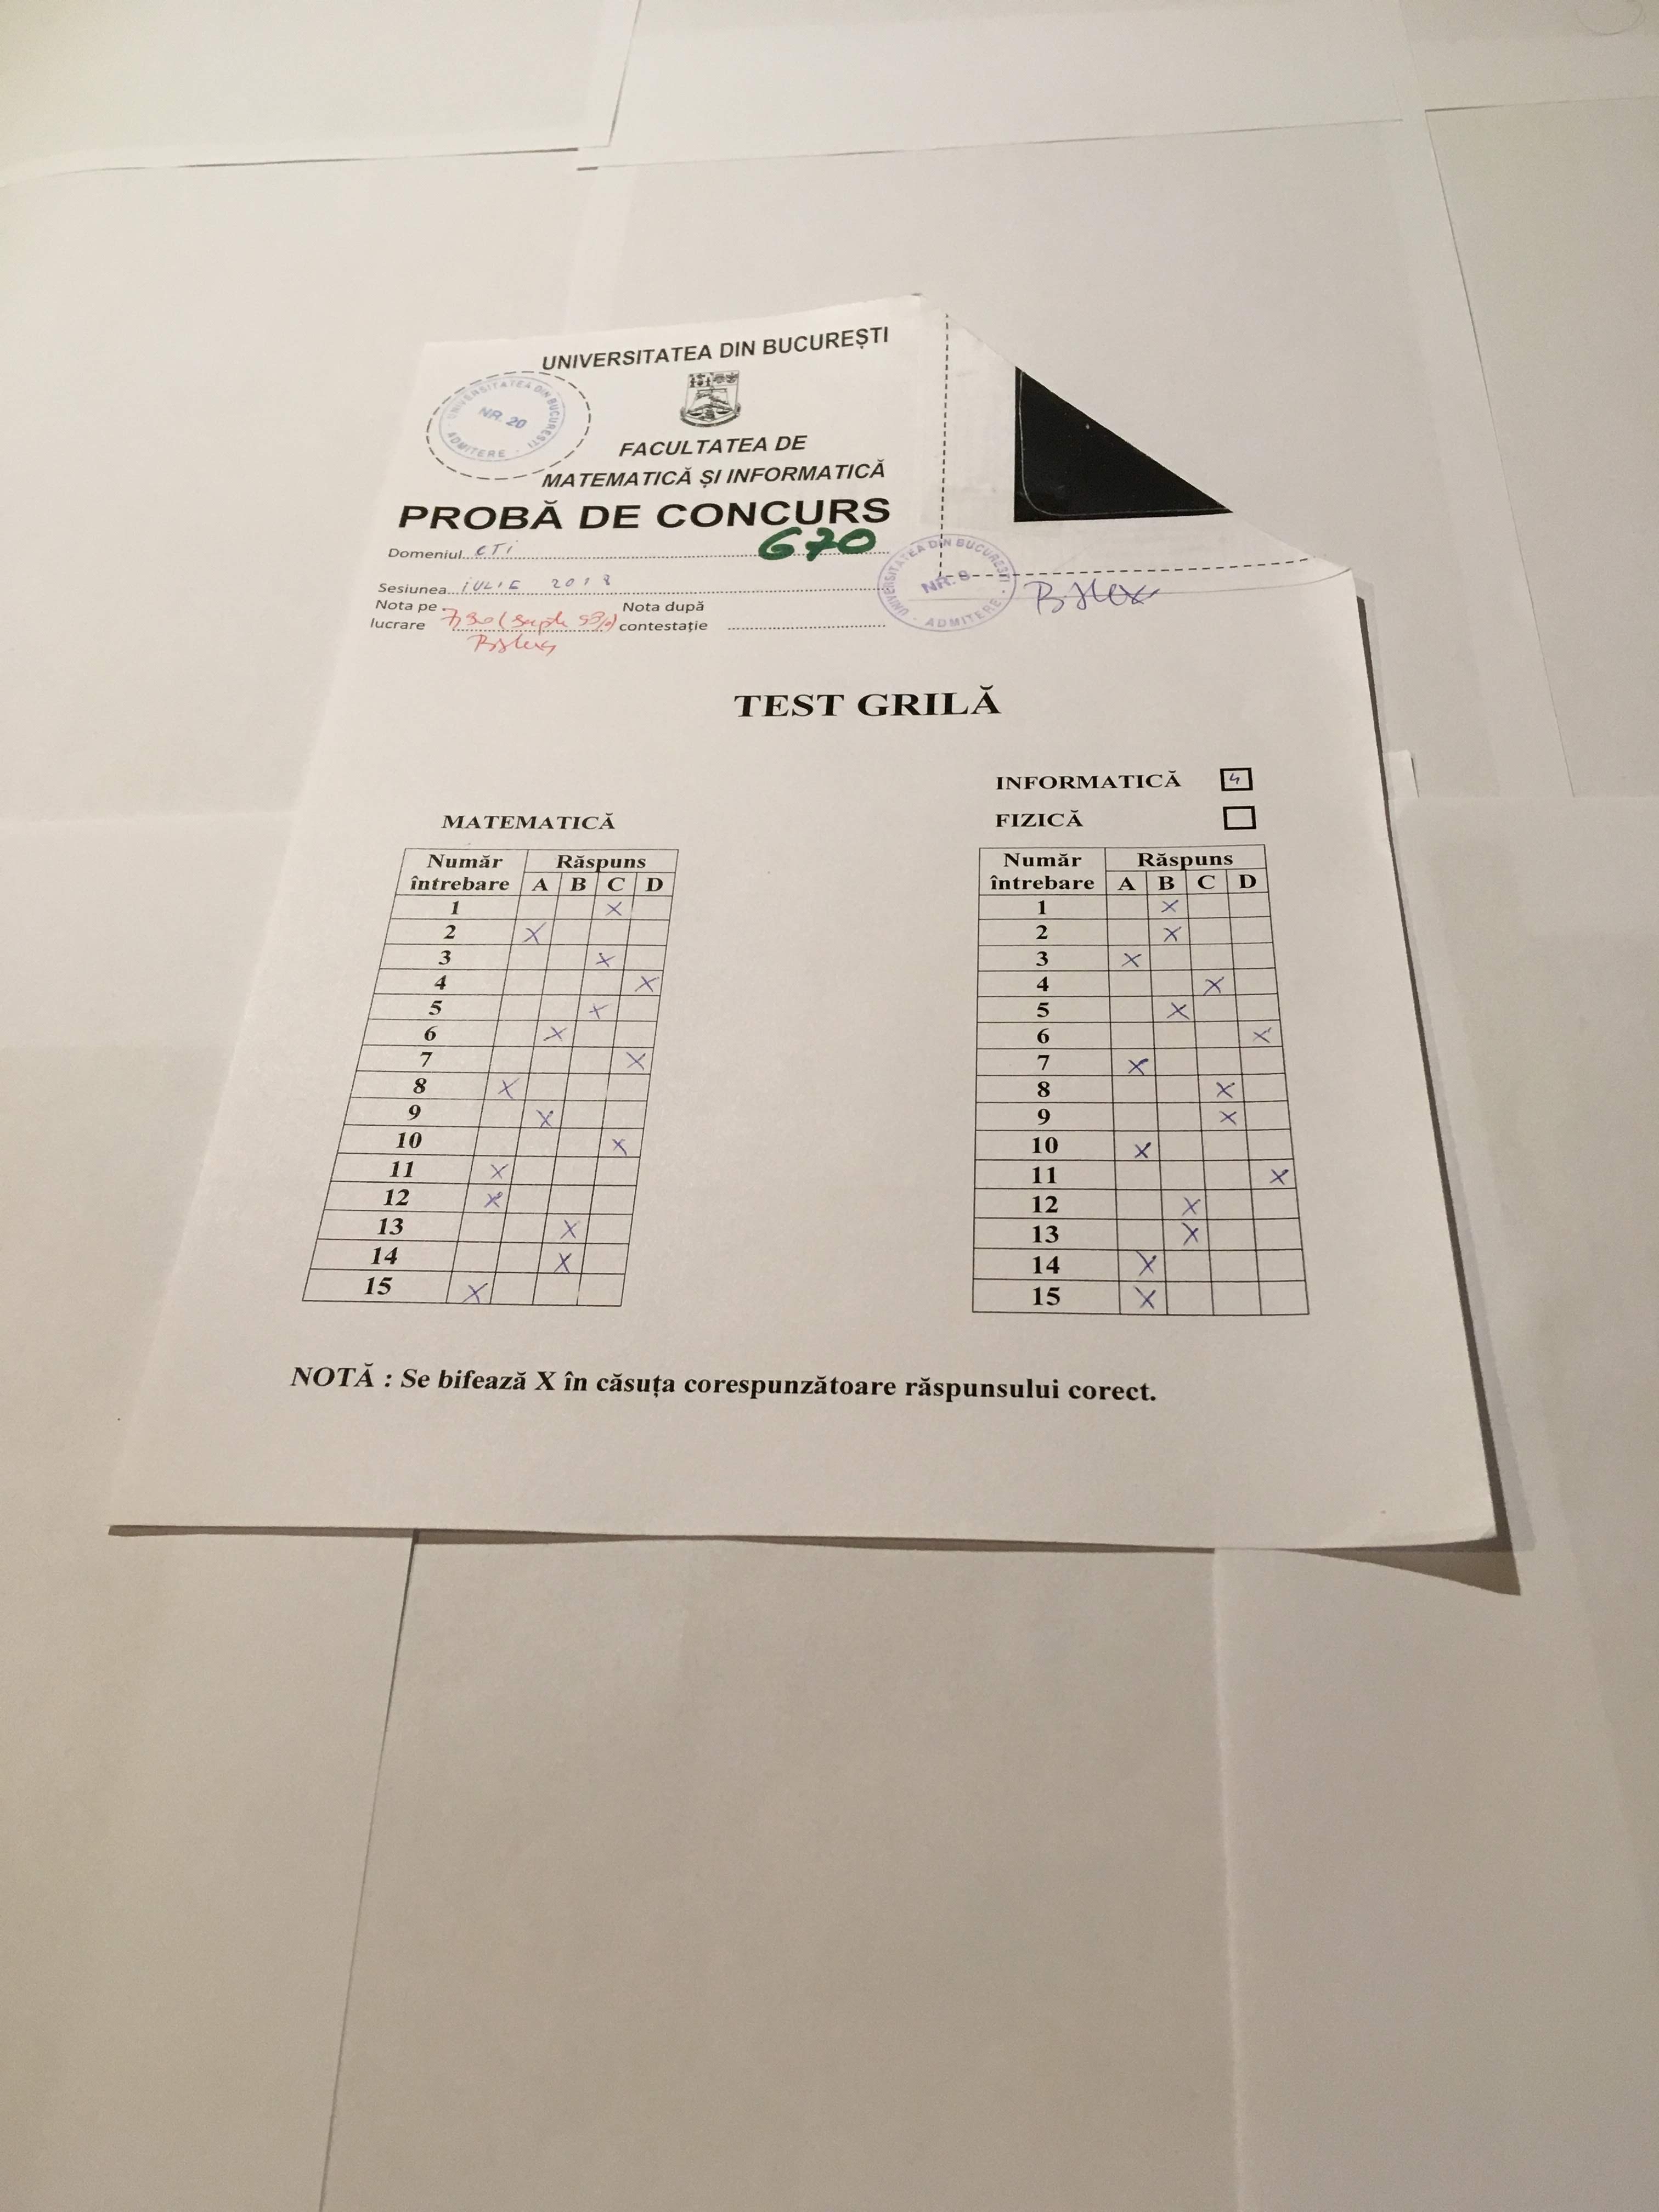 UNIVERSITATEA DIN BUCUREȘTI
UNIVERSITATEA DIN BUCUREȘTI
NR. 20
ADMITERE
FACULTATEA DE
MATEMATICĂ ȘI INFORMATICĂ
PROBĂ DE CONCURS
670
Domeniul CTi
Sesiunea iULIE 2018
Nota pe lucrare
Nota după contestație
UNIVERSITATEA DIN BUCUREȘTI
NR. 8
ADMITERE
TEST GRILĂ
INFORMATICĂ 4
FIZICĂ
MATEMATICĂ
Număr întrebare Răspuns
A B C D
1 X
2 X
3 X
4 X
5 X
6 X
7 X
8 X
9 X
10 X
11 X
12 X
13 X
14 X
15 X
Număr întrebare Răspuns
A B C D
1 X
2 X
3 X
4 X
5 X
6 X
7 X
8 X
9 X
10 X
11 X
12 X
13 X
14 X
15 X
NOTĂ : Se bifează X în căsuța corespunzătoare răspunsului corect.